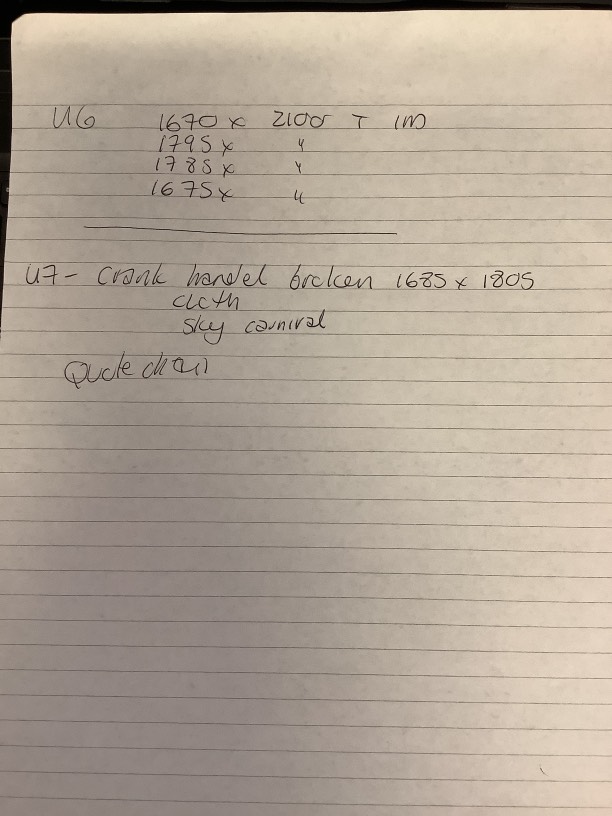 U6 1670 x 2100 T IM
1795 x "
1785 x "
1675 x "
U7 - Crank handel broken 1685 x 1805
cloth
sky carnival
Quote chain